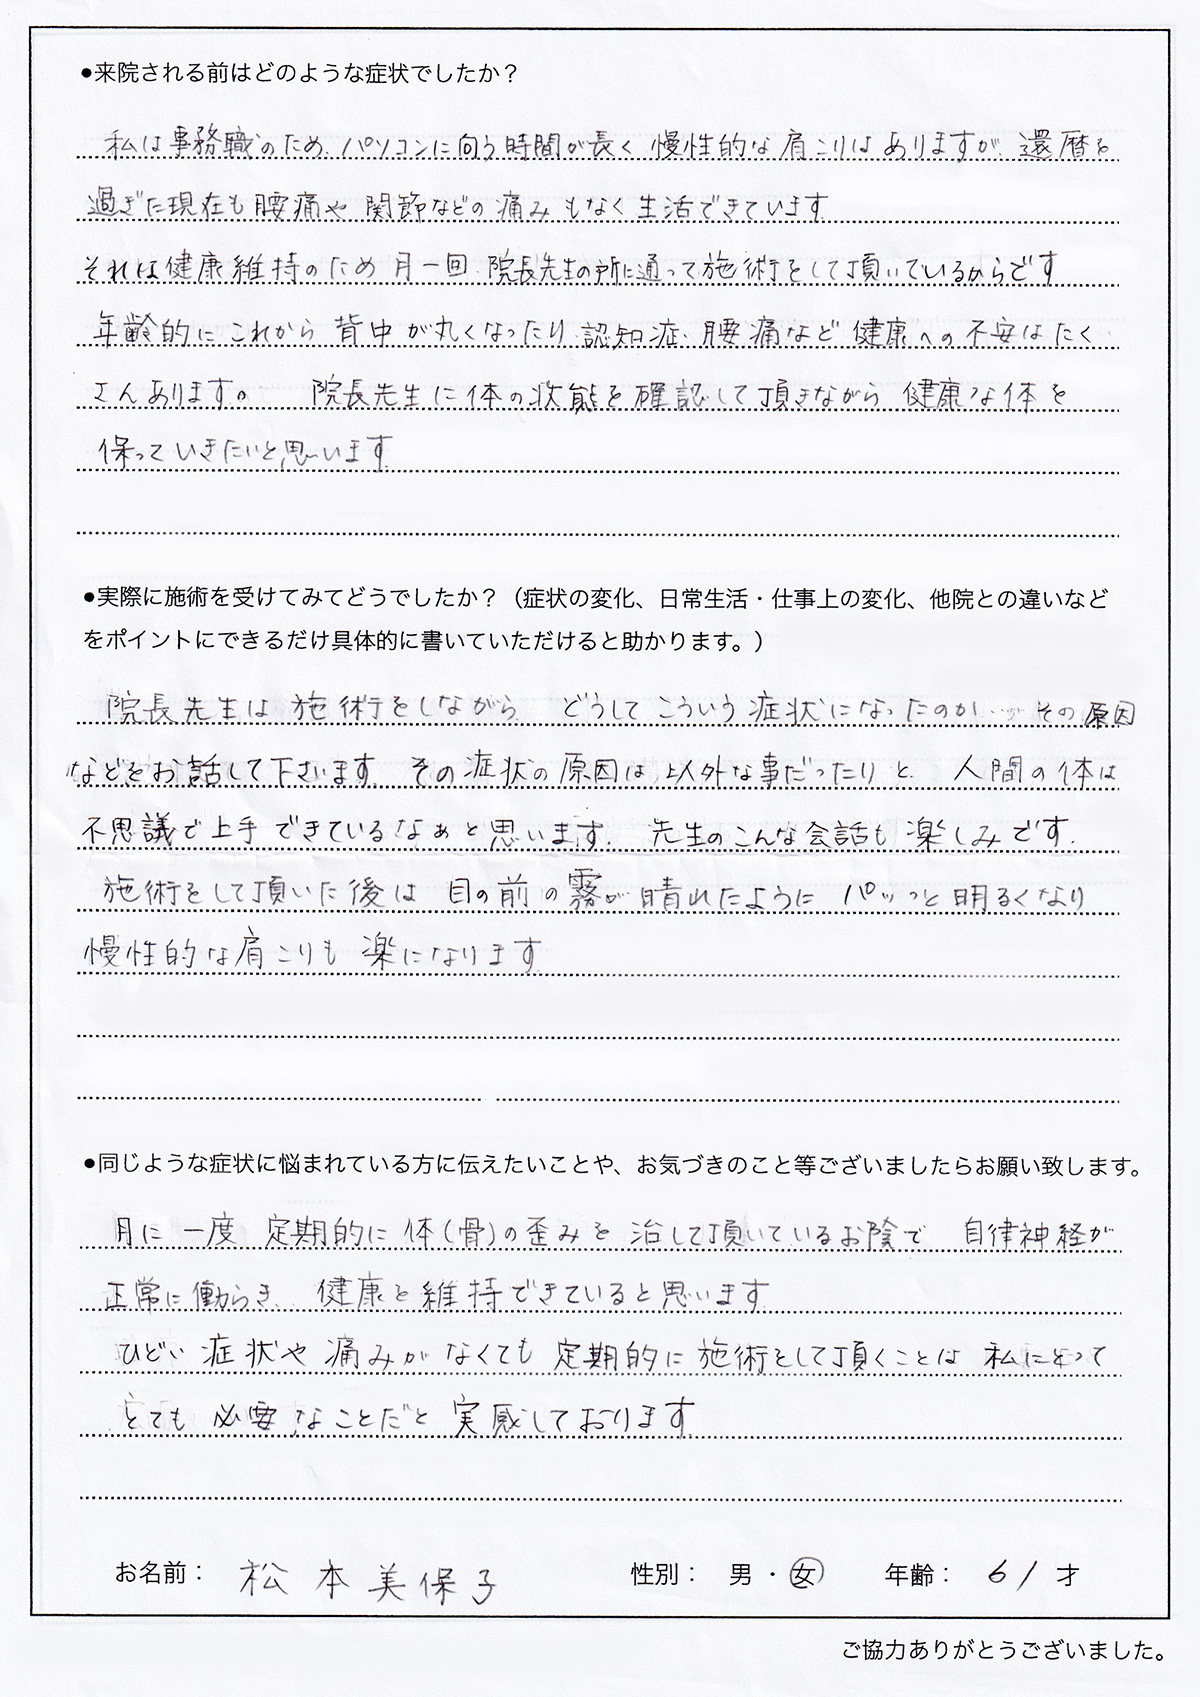 ●来院される前はどのような症状でしたか？
私は事務職のため、パソコンに向う時間が長く 慢性的な肩こりはありますが、還暦を
過ぎた現在も腰痛や関節などの痛みもなく生活できています
それは健康維持のため月一回、院長先生の所に通って施術をして頂いているからです
年齢的にこれから背中が丸くなったり、認知症、腰痛など健康への不安はたく
さんあります。 院長先生に体の状態を確認して頂きながら 健康な体を
保っていきたいと思います
●実際に施術を受けてみてどうでしたか？（症状の変化、日常生活・仕事上の変化、他院との違いなど
をポイントにできるだけ具体的に書いていただけると助かります。）
院長先生は施術をしながら どうしてこういう症状になったのか… その原因
などをお話して下さいます。その症状の原因は以外な事だったりと、人間の体は
不思議で上手できているなぁと思います。 先生のこんな会話も楽しみです。
施術をして頂いた後は 目の前の霧が晴れたように パッっと明るくなり
慢性的な肩こりも楽になります
●同じような症状に悩まれている方に伝えたいことや、お気づきのこと等ございましたらお願い致します。
月に一度 定期的に体(骨)の歪みを治して頂いているお陰で 自律神経が
正常に働らき、健康を維持できていると思います
ひどい症状や痛みがなくても定期的に施術をして頂くことは 私にとって
とても必要なことだと実感しております
お名前： 松本美保子 性別： 男 ・ 女 年齢： 61 才
ご協力ありがとうございました。